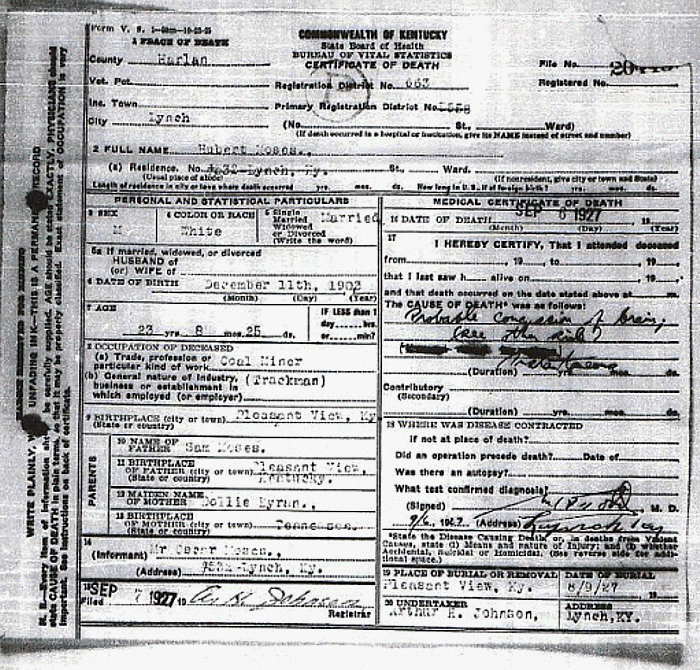 Form V. S.
1 PLACE OF DEATH
COMMONWEALTH OF KENTUCKY
State Board of Health
BUREAU OF VITAL STATISTICS
CERTIFICATE OF DEATH
County Harlan
File No.
Vot. Pct.
Registration District No. 663
Registered No.
Inc. Town
Primary Registration District No.
City Lynch
(No. St., Ward)
(If death occurred in a hospital or institution, give its NAME instead of street and number)
2 FULL NAME Hubert Moses.,
(a) Residence. No. #532-Lynch, Ky. St., Ward.
(Usual place of abode) (If nonresident, give city or town and State)
Length of residence in city or town where death occurred yrs. mos. ds. How long in U. S., if of foreign birth? yrs. mos. ds.
PERSONAL AND STATISTICAL PARTICULARS
3 SEX
M
4 COLOR OR RACE
White
5 Single
Married
Widowed
or Divorced
(Write the word)
Married
5a If married, widowed, or divorced
HUSBAND of
(or) WIFE of
6 DATE OF BIRTH December 11th, 1903
(Month) (Day) (Year)
7 AGE
23 yrs. 8 mos. 25 ds.
IF LESS than 1
day hrs.
or min?
8 OCCUPATION OF DECEASED
(a) Trade, profession or
particular kind of work Coal Miner
(b) General nature of industry,
business or establishment in
which employed (or employer) (Trackman)
9 BIRTHPLACE (city or town) Pleasant View, Ky
(State or country)
PARENTS
10 NAME OF
FATHER Sam Moses.
11 BIRTHPLACE
OF FATHER (city or town) Pleasant View,
(State or country) Kentucky.
12 MAIDEN NAME
OF MOTHER Dollie Byrun.,
13 BIRTHPLACE
OF MOTHER (city or town) Tennessee.
(State or country)
14
(Informant) Mr Oscar Moses.,
(Address) #532-Lynch, Ky.
15 Filed SEP 7 1927 19 A. H. Johnson
Registrar
MEDICAL CERTIFICATE OF DEATH
16 DATE OF DEATH SEP 6 1927 19
(Month) (Day) (Year)
17
I HEREBY CERTIFY, That I attended deceased
from , 19 , to , 19
that I last saw h alive on , 19
and that death occurred on the date stated above at m.
The CAUSE OF DEATH* was as follows:
Probable concussion of brain,
(see other side)
(Duration) yrs. mos. ds.
Contributory
(Secondary)
(Duration) yrs. mos. ds.
18 WHERE WAS DISEASE CONTRACTED
if not at place of death?
Did an operation precede death? Date of
Was there an autopsy?
What test confirmed diagnosis?
(Signed) M. D.
9/6, 1927 (Address) Lynch Ky
*State the Disease Causing Death, or, in deaths from Violent
Causes, state (1) Means and nature of Injury; and (2) whether
Accidental, Suicidal or Homicidal. (See reverse side for addi-
tional space.)
19 PLACE OF BURIAL OR REMOVAL
Pleasant View, Ky.
DATE OF BURIAL
8/9/27 , 19
20 UNDERTAKER
Arthur H. Johnson,
ADDRESS
Lynch,KY.
WRITE PLAINLY, UNFADING INK—THIS IS A PERMANENT RECORD